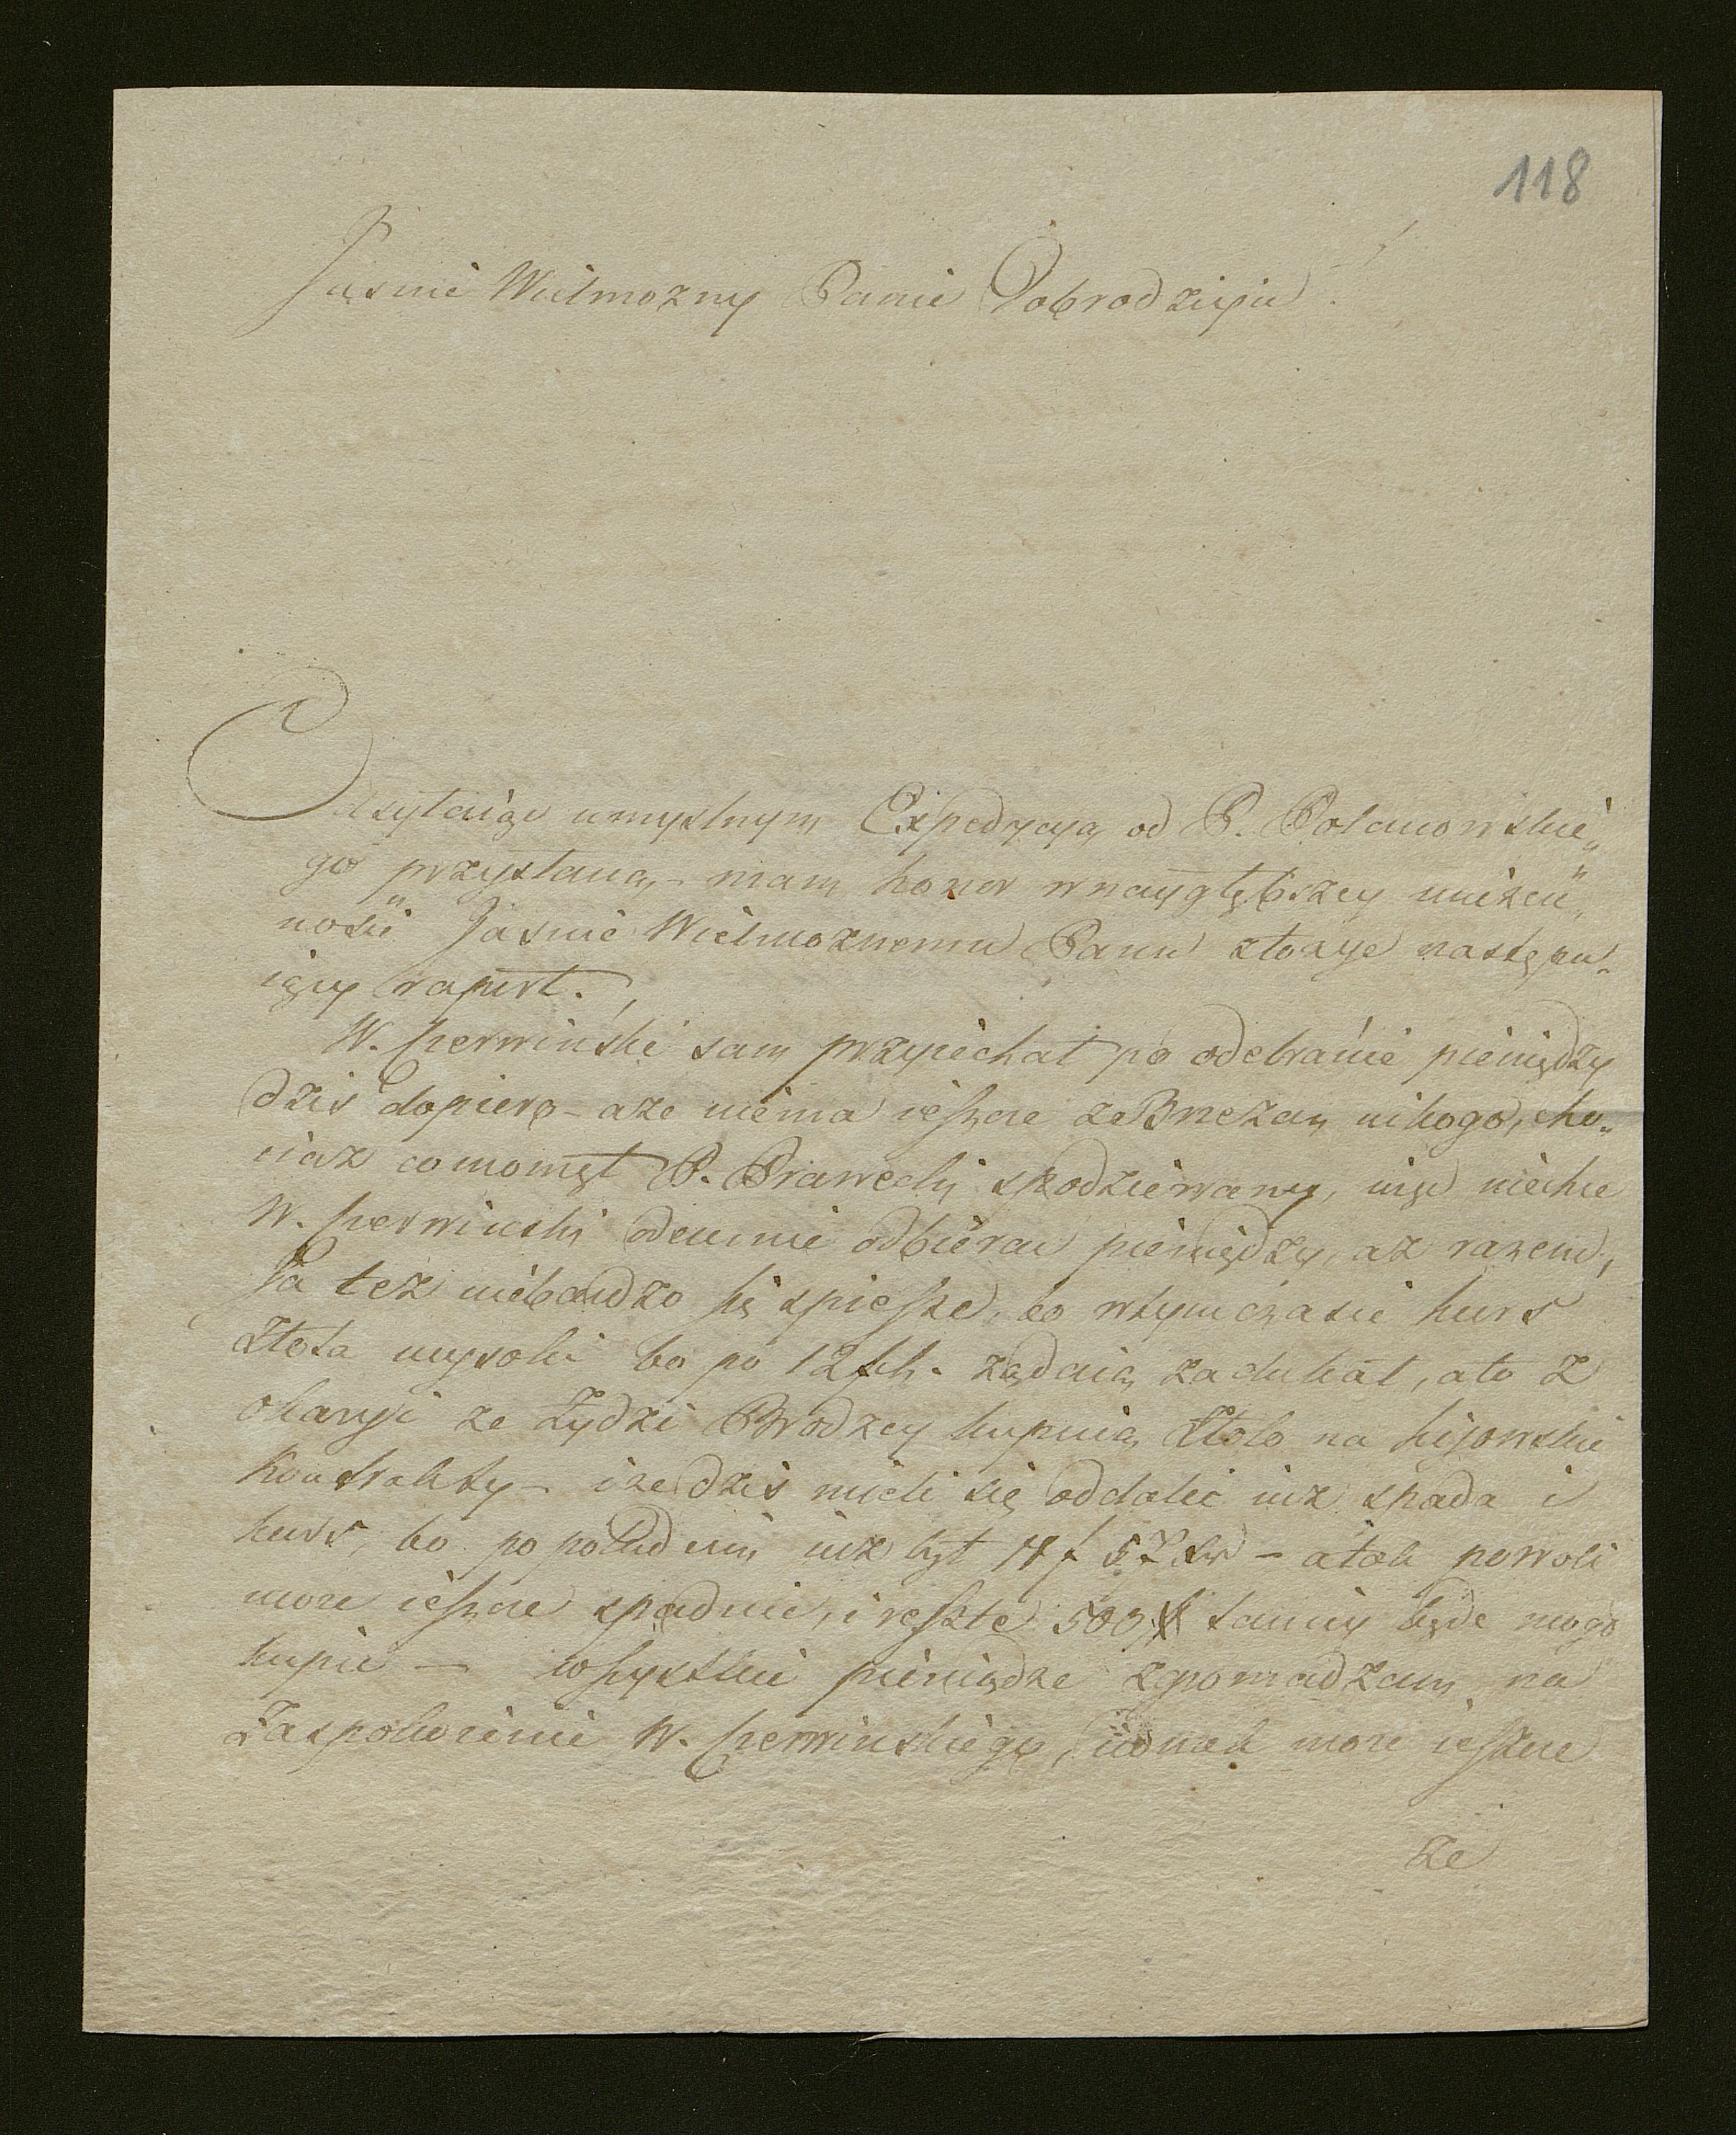 118
Jasnie Wielmozny Panie Dobrodzieju!
Odsyłaiąc umyslnym Expedycyą od P. Polanowskie„
go przysłaną, – mam honor w naygłębszey unizen„
nosci Jasnie Wielmoznemu Panu złozyć następu„
iący raport.
W. Czerwiński sam przyiechał po odebranie pieniędzy
dzis dopiero – aze niema ieszcze ze Brzezan nikogo, cho„
ciaz co moment P. Prawecki spodziewany, więc niechce
W. Czerwinski odemnie odbierac pieniędzy, az razem,
Ja tez niebardzo się spieszę, bo w tym czasie kurs
złota wysoki bo po 12 żądaią za dukat, a to z
okazyi ze Żydzi Brodzcy kupuią złoto na kijowskie
kontrakty – i ze dzis mieli się oddalić iuz spada i
kurs, bo popołudniu iuz był 11 f 57 – a tak powoli
moze ieszcze spadnie, i resztę 500 # taniey będę mogł
kupic – wszystkie pieniądze zgromadzam na
Zaspokoienie W. Czerwinskiego, iednak moze ieszcze
ze